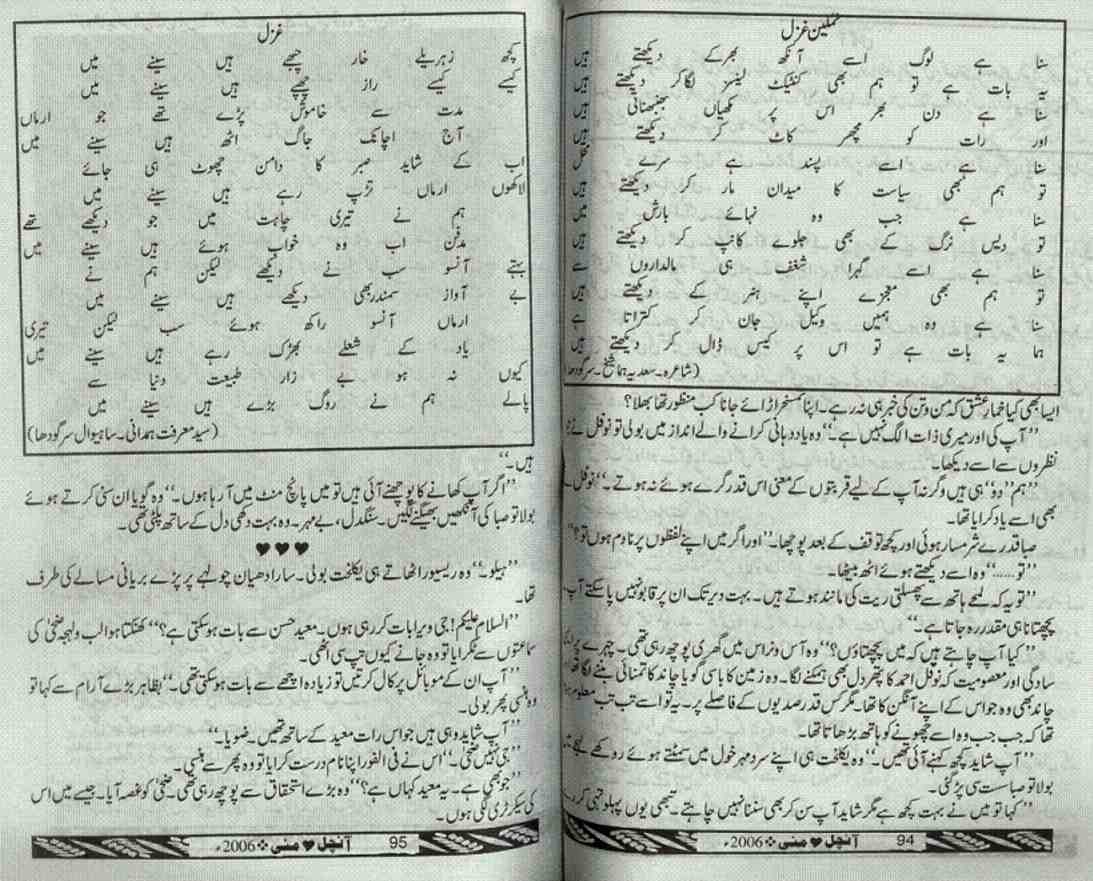 نمکین غزل
سنا ہے لوگ اسے آنکھ بھرکے دیکھتے ہیں
یہ بات ہے تو ہم بھی کنٹیکٹ لینسز لگاکر دیکھتے ہیں
سنا ہے دن بھر اس پر مکھیاں بھنبھناتی ہیں
اور رات کو مچھر کاٹ کر دیکھتے ہیں
سنا ہے اسے پسند ہے سرے محل
تو ہم بھی سیاست کا میدان مار کر دیکھتے ہیں
سنا ہے جب وہ نہائے بارش میں
تو دیس نرگ کے بھی جلوے کانپ کر دیکھتے ہیں
سنا ہے اسے گہرا شغف ہی مالداروں سے
تو ہم بھی معجزے اپنے ہنر کے دیکھتے ہیں
سنا ہے وہ ہمیں وکیل جان کر کتراتا ہے
ہما یہ بات ہے تو اس پر کیس ڈال کر دیکھتے ہیں
(شاعرہ۔سعدیہ ہما شیخ۔سرگودھا)
ایسا بھی کیا خمار عشق کہ من و تن کی خبر ہی نہ رہے۔ اپنا تمسخر اڑائے جانا کب منظور تھا بھلا؟
’’آپ کی اور میری ذات الگ نہیں ہے۔‘‘ وہ یاد دہانی کرانے والے انداز میں بولی تو نوفل نے
نظروں سے اسے دیکھا۔
’’ہم ’’دو‘‘ ہی ہیں وگرنہ آپ کے لیے قربتوں کے معنی اس قدر گرے ہوئے نہ ہوتے۔‘‘ نوفل نے
بھی اسے یاد کرایا تھا۔
صبا قدرے شرمسار ہوئی اور کچھ توقف کے بعد پوچھا۔ ’’اور اگر میں اپنے لفظوں پر نادم ہوں تو؟‘‘
’’تو......‘‘ وہ اسے دیکھتے ہوئے اٹھ بیٹھا۔
’’تو یہ کہ لمحے ہاتھ سے پھسلتی ریت کی مانند ہوتے ہیں۔ بہت دیر تک ان پر قابو نہیں پا سکتے آپ۔
پچھتانا ہی مقدر رہ جاتا ہے۔‘‘
’’کیا آپ چاہتے ہیں کہ میں پچھتاؤں؟‘‘ وہ آس و نراس میں گھری پوچھ رہی تھی۔ چہرے پر
سادگی اور معصومیت کہ نوفل احمد کا پتھر دل بھی ہمکنے لگا۔ وہ زمین کا باسی گویا چاند کا تمنائی بننے لگا تھا۔
چاند بھی وہ جو اس کے اپنے آنگن کا تھا۔ مگر کس قدر صدیوں کے فاصلے پر۔ یہ تو اسے تب تب معلوم ہوتا
تھا کہ جب جب وہ اسے چھونے کو ہاتھ بڑھاتا تھا۔
’’آپ شاید کچھ کہنے آئی تھیں۔‘‘ وہ یکلخت ہی اپنے سرد مہر خول میں سمٹتے ہوئے روکھے لہجے میں
بولا تو صبا سست سی پڑ گئی۔
’’کہا تو میں نے بہت کچھ ہے مگر شاید آپ سن کر بھی سننا نہیں چاہتے۔ تبھی یوں پہلو تہی کر رہے
94 آنچل ♥ مئی ❖ 2006ء
غزل
کچھ زہریلے خار چبھے ہیں سینے میں
کیسے کیسے راز چھپے ہیں سینے میں
مدت سے خاموش پڑے تھے جو ارماں
آج اچانک جاگ اٹھے ہیں سینے میں
اب کے شاید صبر کا دامن چھوٹ ہی جائے
لاکھوں ارماں تڑپ رہے ہیں سینے میں
ہم نے تیری چاہت میں جو دیکھے تھے
مدفن اب وہ خواب ہوئے ہیں سینے میں
بہتے آنسو سب نے دیکھے لیکن ہم نے
بے آواز سمندر بھی دیکھے ہیں سینے میں
ارماں آنسو راکھ ہوئے سب لیکن تیری
یاد کے شعلے بھڑک رہے ہیں سینے میں
کیوں نہ ہو بے زار طبیعت دنیا سے
پالے ہم نے روگ بڑے ہیں سینے میں
(سید معرفت ہمدانی۔ساہیوال سرگودھا)
ہیں۔‘‘
’’اگر آپ کھانے کا پوچھنے آئی ہیں تو میں پانچ منٹ میں آ رہا ہوں۔‘‘ وہ گویا ان سنی کرتے ہوئے
بولا تو صبا کی آنکھیں بھیگنے لگیں۔ سنگدل، بے مہر۔ وہ بہت دکھی دل کے ساتھ پلٹی تھی۔
♥♥♥
’’ہیلو۔‘‘ وہ ریسیور اٹھاتے ہی یکلخت بولی۔ سارا دھیان چولہے پر پڑے بریانی مسالے کی طرف
تھا۔
’’السلام علیکم! جی ویرا بات کر رہی ہوں۔ معید حسن سے بات ہو سکتی ہے؟‘‘ کھنکتا ہوا لب و لہجہ ضحیٰ کی
سماعتوں سے ٹکرایا تو وہ جانے کیوں تپ سی اٹھی۔
’’آپ ان کے موبائل پر کال کرتیں تو زیادہ اچھے سے بات ہو سکتی تھی۔‘‘ بظاہر بڑے آرام سے کہا تو
وہ ہنسی پھر بولی۔
’’آپ شاید وہی ہیں جو اس رات معید کے ساتھ تھیں۔ ضویا۔‘‘
’’جی نہیں ضحیٰ۔‘‘ اس نے فی الفور اپنا نام درست کرایا تو وہ پھر سے ہنسی۔
’’جو بھی ہے۔ یہ معید کہاں ہے؟‘‘ وہ بڑے استحقاق سے پوچھ رہی تھی۔ ضحیٰ کو غصہ آیا۔ جیسے میں اس
کی سیکرٹری لگی ہوں۔
95 آنچل ♥ مئی ❖ 2006ء